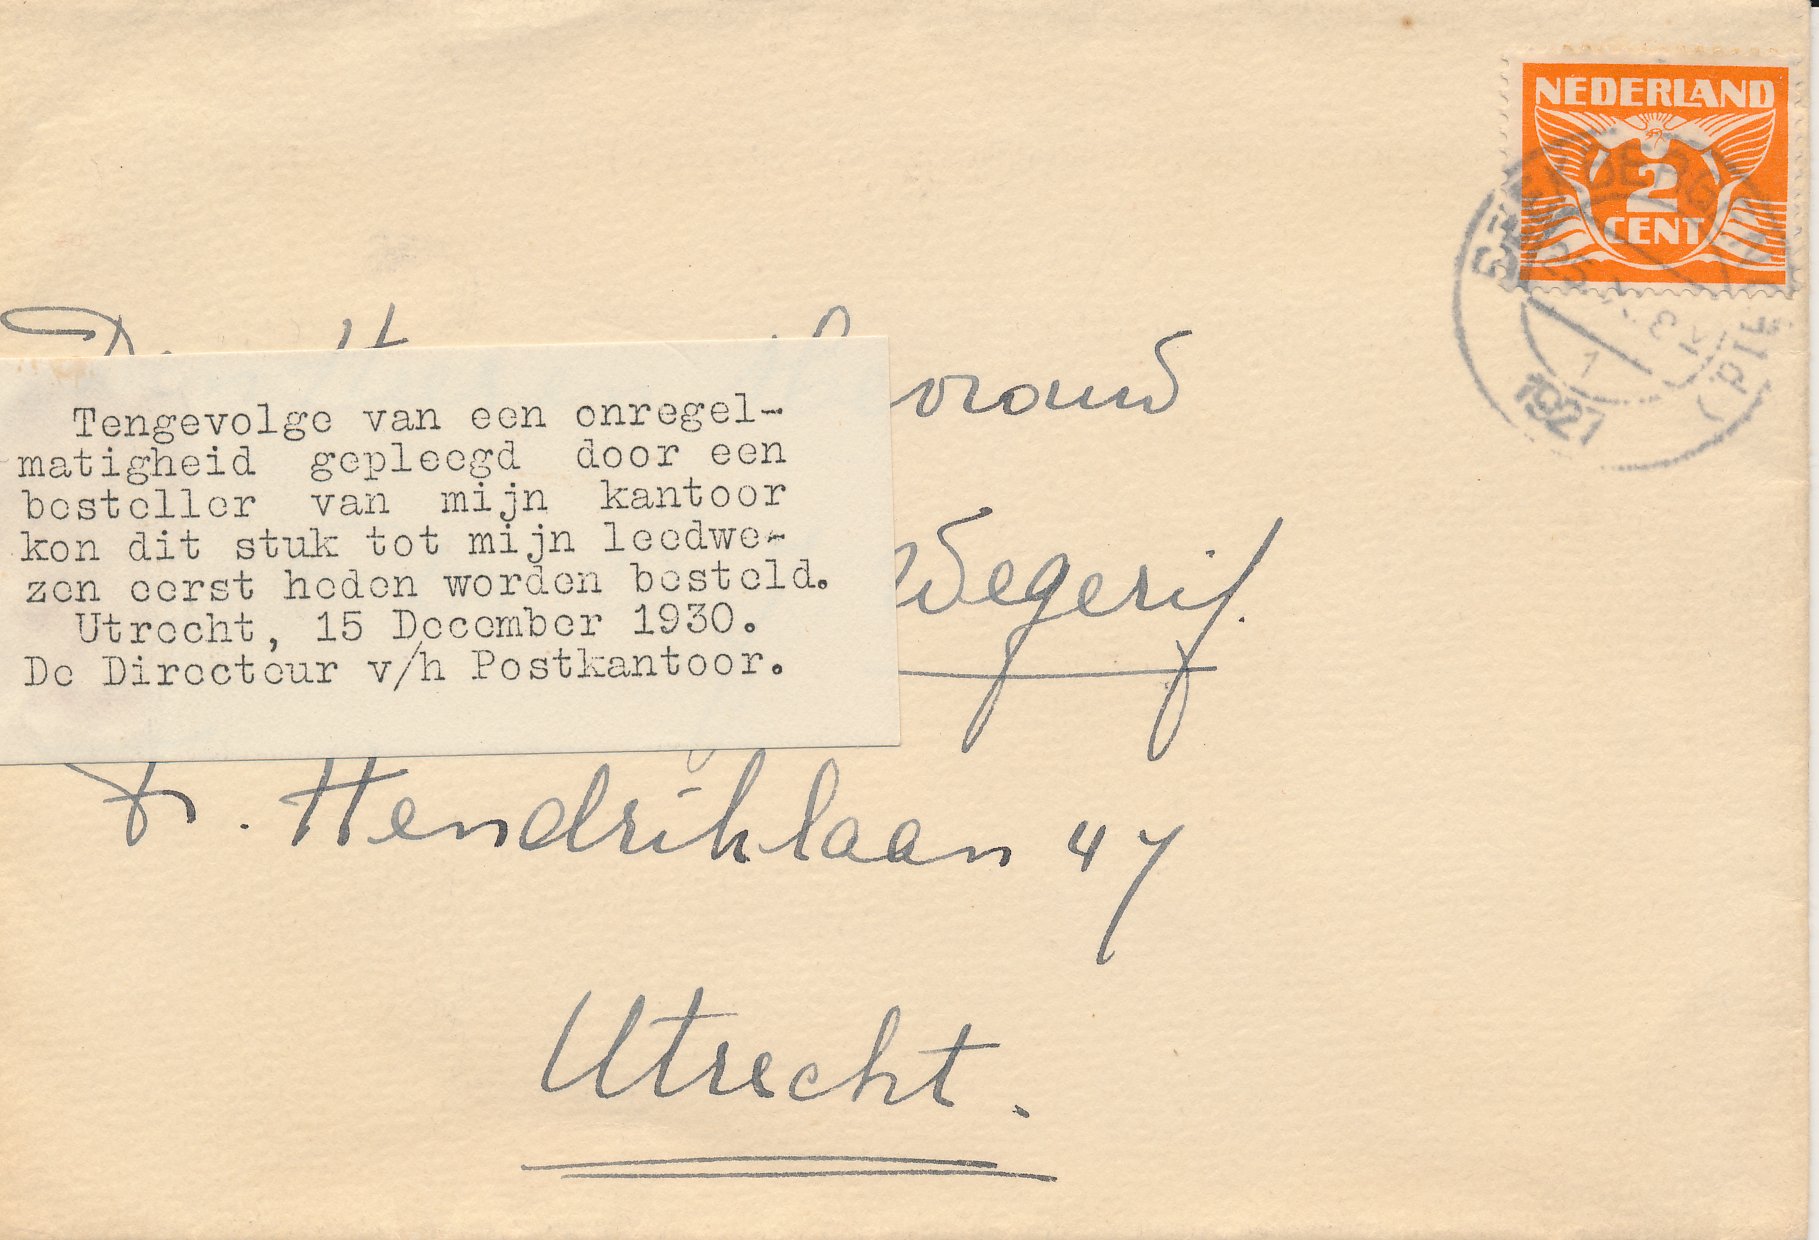 NEDERLAND
2
CENT
1927
Tengevolge van een onregel-
matigheid gepleegd door een
besteller van mijn kantoor
kon dit stuk tot mijn leedwe-
zen eerst heden worden besteld.
Utrecht, 15 December 1930.
De Directeur v/h Postkantoor.
Wegerif.
Hendriklaan 47
Utrecht.